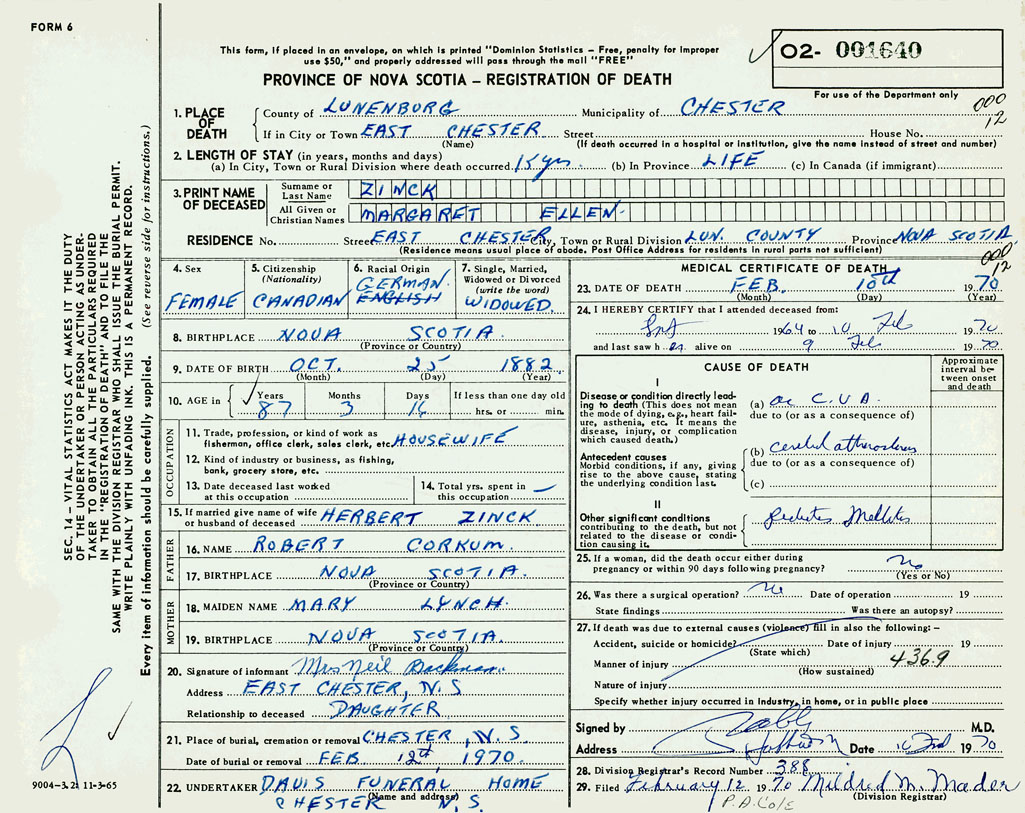 FORM 6
This form, if placed in an envelope, on which is printed "Dominion Statistics – Free, penalty for improper
use $50," and properly addressed will pass through the mail "FREE"
PROVINCE OF NOVA SCOTIA – REGISTRATION OF DEATH
02- 001640
For use of the Department only
000
12
SEC. 14 – VITAL STATISTICS ACT MAKES IT THE DUTY
OF THE UNDERTAKER OR PERSON ACTING AS UNDER-
TAKER TO OBTAIN ALL THE PARTICULARS REQUIRED
IN THE "REGISTRATION OF DEATH" AND TO FILE THE
SAME WITH THE DIVISION REGISTRAR WHO SHALL ISSUE THE BURIAL PERMIT.
WRITE PLAINLY WITH UNFADING INK. THIS IS A PERMANENT RECORD.
Every item of information should be carefully supplied. (See reverse side for instructions.)
1. PLACE OF DEATH
County of LUNENBURG Municipality of CHESTER
If in City or Town EAST CHESTER Street House No.
(Name) (If death occurred in a hospital or institution, give the name instead of street and number)
2. LENGTH OF STAY (in years, months and days)
(a) In City, Town or Rural Division where death occurred (b) In Province LIFE (c) In Canada (if immigrant)
3. PRINT NAME OF DECEASED
Surname or Last Name ZINCK
All Given or Christian Names MARGARET ELLEN
RESIDENCE No. Street EAST CHESTER City, Town or Rural Division LUN. COUNTY Province NOVA SCOTIA
(Residence means usual place of abode. Post Office Address for residents in rural parts not sufficient)
000
12
4. Sex
FEMALE
5. Citizenship
(Nationality)
CANADIAN
6. Racial Origin
GERMAN
ENGLISH
7. Single, Married,
Widowed or Divorced
(write the word)
WIDOWED.
8. BIRTHPLACE NOVA SCOTIA
(Province or Country)
9. DATE OF BIRTH OCT. 25 1882
(Month) (Day) (Year)
10. AGE in Years Months Days If less than one day old
87 3 16 hrs. or min.
OCCUPATION
11. Trade, profession, or kind of work as
fisherman, office clerk, sales clerk, etc. HOUSEWIFE
12. Kind of industry or business, as fishing,
bank, grocery store, etc.
13. Date deceased last worked
at this occupation
14. Total yrs. spent in
this occupation —
15. If married give name of wife
or husband of deceased HERBERT ZINCK
FATHER
16. NAME ROBERT CORKUM.
17. BIRTHPLACE NOVA SCOTIA.
(Province or Country)
MOTHER
18. MAIDEN NAME MARY LYNCH.
19. BIRTHPLACE NOVA SCOTIA.
(Province or Country)
20. Signature of informant Mrs Neil
Address EAST CHESTER, N.S
Relationship to deceased DAUGHTER
21. Place of burial, cremation or removal CHESTER, N.S
Date of burial or removal FEB 12th, 1970
22. UNDERTAKER DAVIS FUNERAL HOME
(Name and address)
CHESTER N.S.
9004-3.2: 11-3-65
MEDICAL CERTIFICATE OF DEATH
23. DATE OF DEATH FEB. 10th 1970
(Month) (Day) (Year)
24. I HEREBY CERTIFY that I attended deceased from:
1964 to 10 Feb 1970
and last saw her alive on 9 Feb 1970
CAUSE OF DEATH
Approximate
interval be-
tween onset
and death
I
Disease or condition directly lead-
ing to death (This does not mean
the mode of dying, e.g., heart fail-
ure, asthenia, etc. It means the
disease, injury, or complication
which caused death.)
(a) ac C.V.A.
due to (or as a consequence of)
Antecedent causes
Morbid conditions, if any, giving
rise to the above cause, stating
the underlying condition last.
(b) cerebral atherosclerosis
due to (or as a consequence of)
(c)
II
Other significant conditions
contributing to the death, but not
related to the disease or condi-
tion causing it.
Diabetes Mellitus
25. If a woman, did the death occur either during
pregnancy or within 90 days following pregnancy? No
(Yes or No)
26. Was there a surgical operation? No Date of operation 19
State findings Was there an autopsy?
27. If death was due to external causes (violence) fill in also the following: –
Accident, suicide or homicide? Date of injury 19
(State which)
Manner of injury 436.9
(How sustained)
Nature of injury
Specify whether injury occurred in industry, in home, or in public place
Signed by M.D.
Address Date 10 Feb 1970
28. Division Registrar's Record Number 388
29. Filed February 12 1970 Mildred M. Mader
(Division Registrar)
P.A. Cole